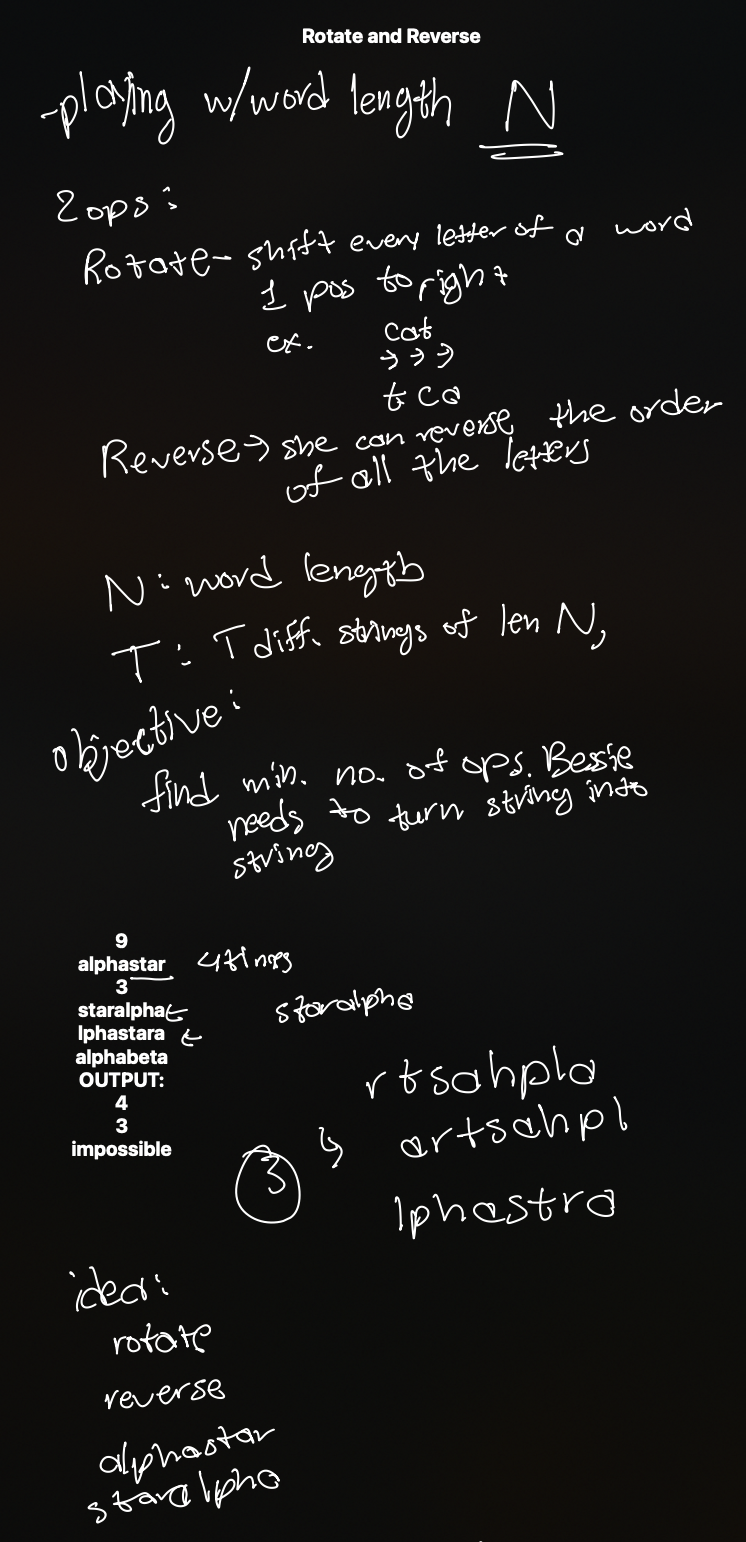 Rotate and Reverse
-playing w/word length N
2 ops:
Rotate- shift every letter of a word
1 pos to right
ex. cat
→→→
tca
Reverse→ she can reverse the order
of all the letters
N: word length
T: T diff. strings of len N,
objective:
find min. no. of ops. Bessie
needs to turn string into
string
9
alphastar 4 times
3
staralpha← staralpha
lphastara ←
alphabeta
OUTPUT:
4
3
impossible
rtsahpla
③ ↳ artsahpl
lphastra
idea:
rotate
reverse
alphastar
staralpha